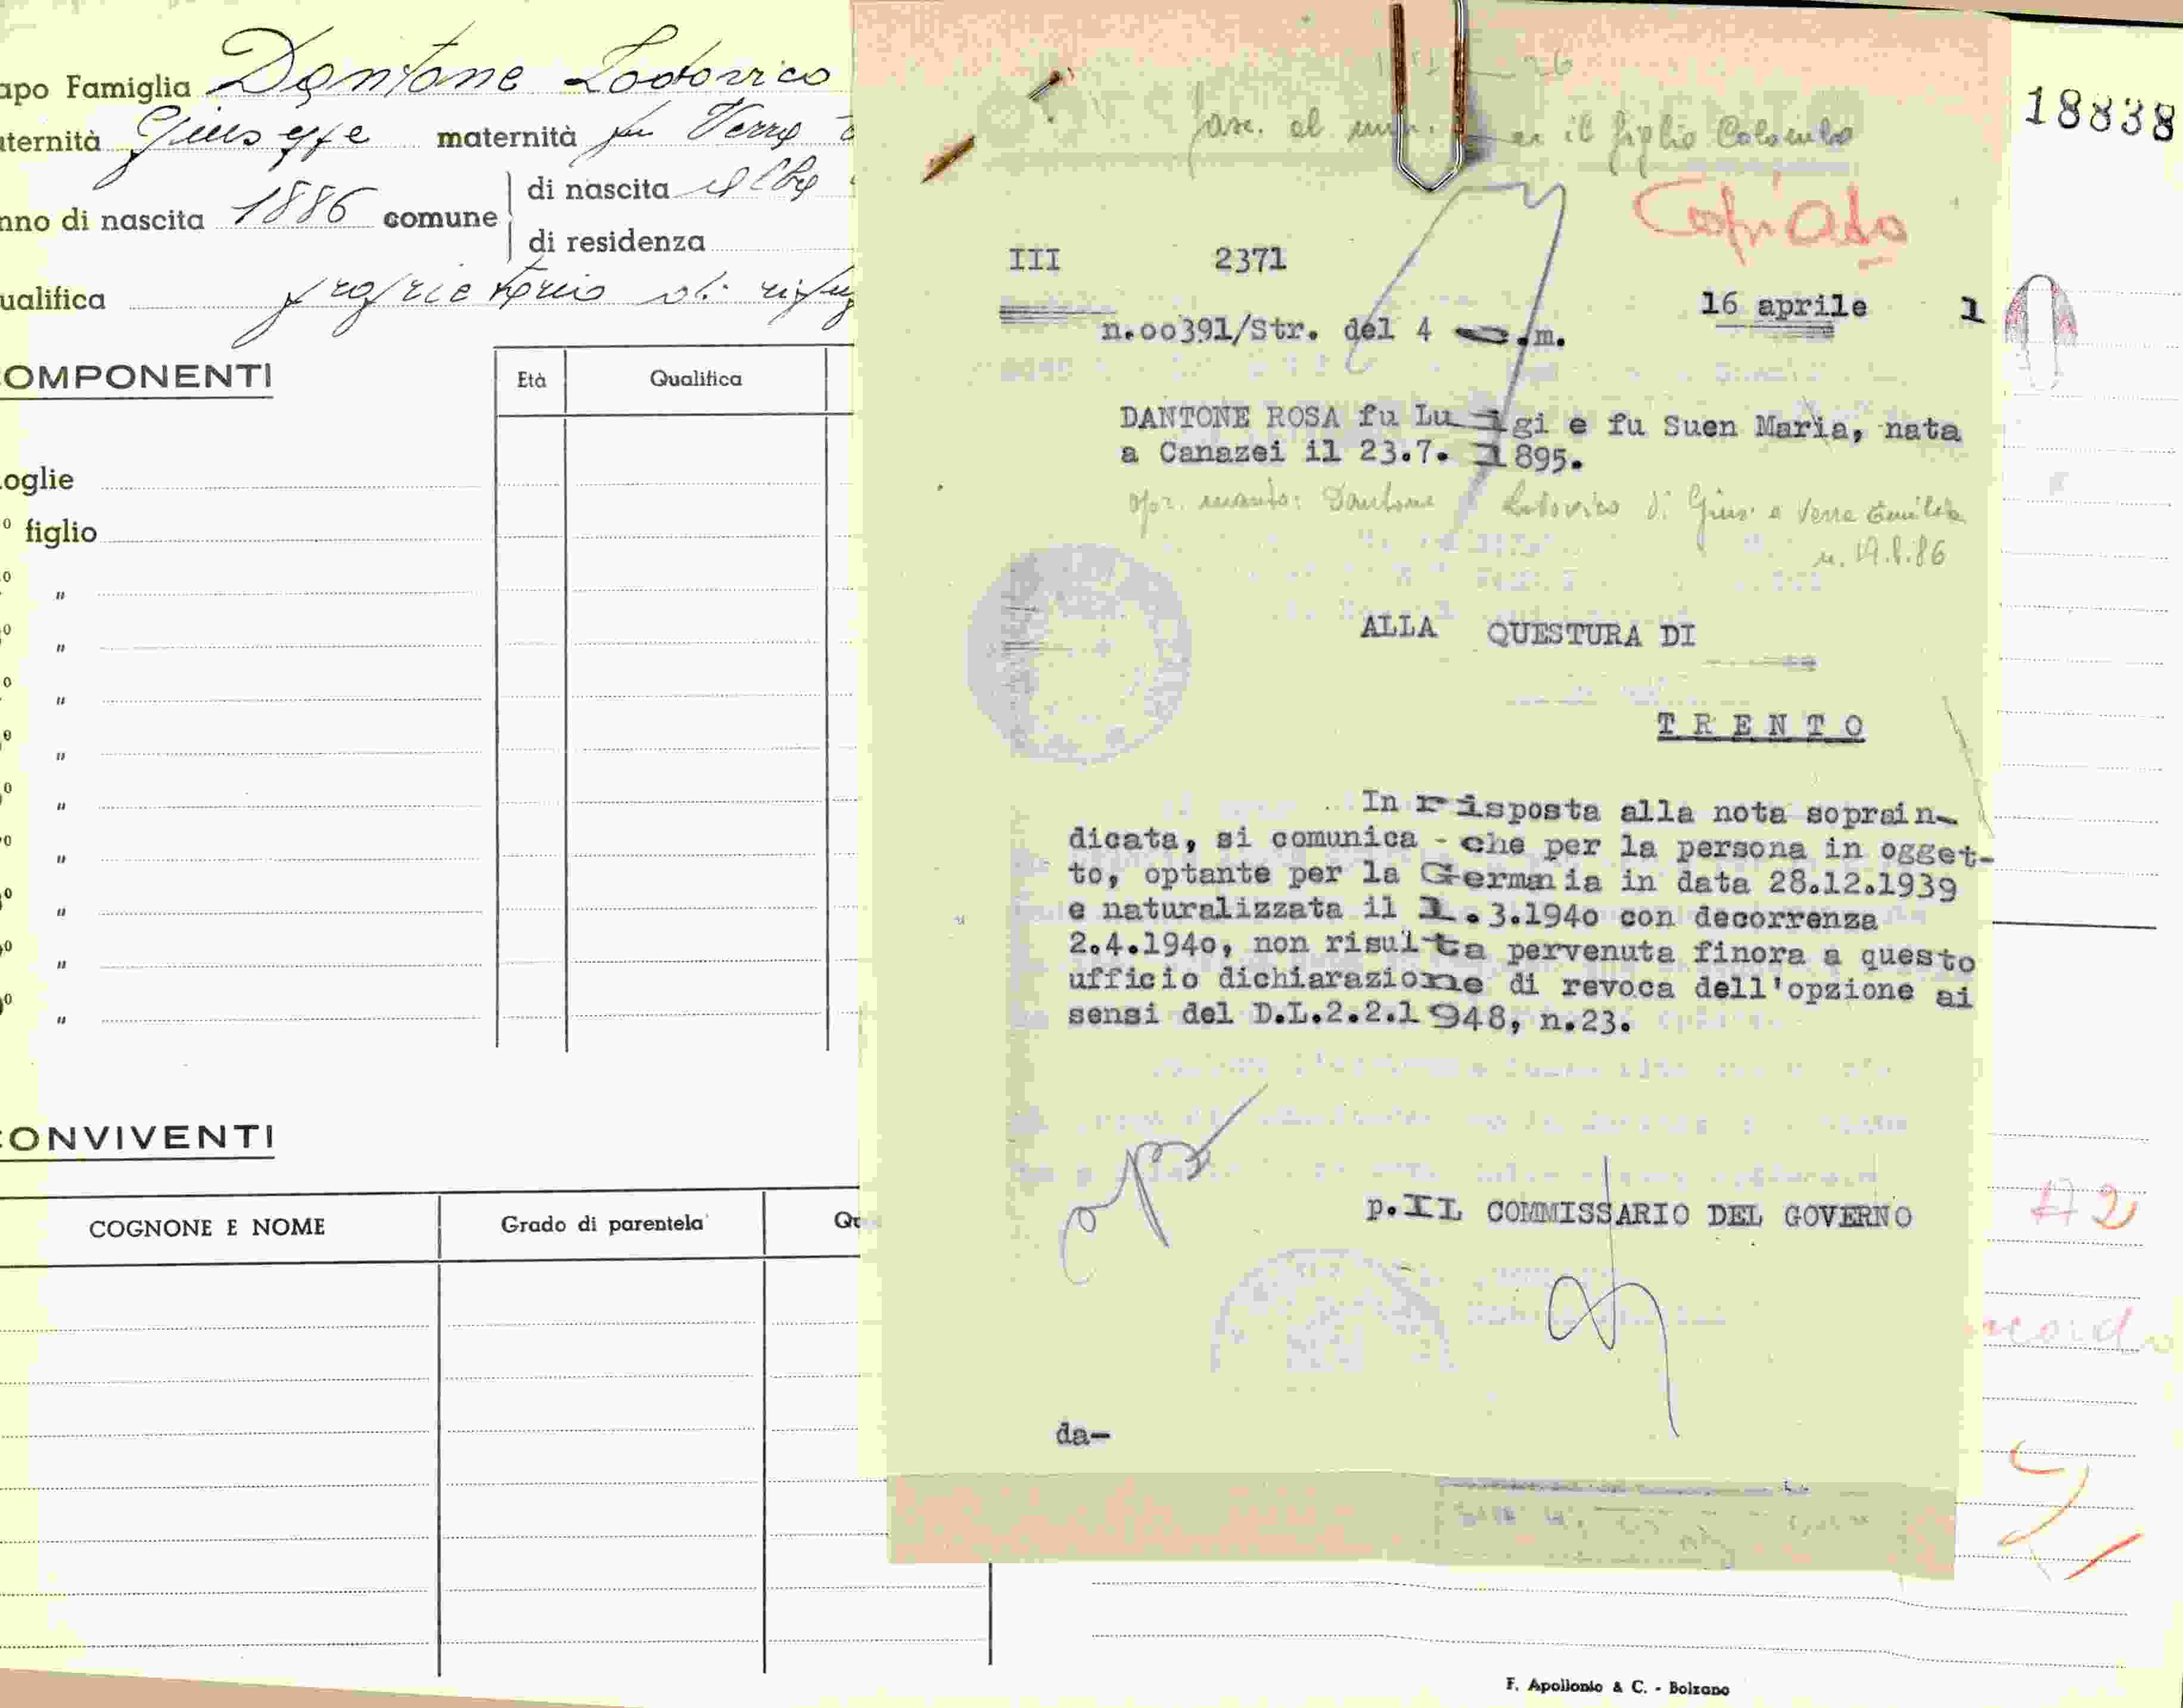 apo Famiglia Dantone Lodovico
aternità Giuseppe maternità fu Verra
nno di nascita 1886 comune di nascita Alba
di residenza
ualifica proprietario di
OMPONENTI
Età
Qualifica
oglie
o figlio
o "
o "
o "
o "
o "
o "
o "
o "
o "
CONVIVENTI
COGNONE E NOME
Grado di parentela
Qu
fasc. al il figlio Colombo
18838
Copiato
III 2371
16 aprile 1
n.oo391/Str. del 4 .m.
DANTONE ROSA fu Luigi e fu Suen Maria, nata
a Canazei il 23.7.1895.
opz. marito: Dantone Lodovico di Gius e Verra Emilia
n. 19.8.86
ALLA QUESTURA DI
TRENTO
In risposta alla nota soprain-
dicata, si comunica - che per la persona in ogget-
to, optante per la Germania in data 28.12.1939
e naturalizzata il 1.3.194o con decorrenza
2.4.194o, non risulta pervenuta finora a questo
ufficio dichiarazione di revoca dell'opzione ai
sensi del D.L.2.2.1948, n.23.
p.IL COMMISSARIO DEL GOVERNO
da-
F. Apollonio & C. - Bolzano